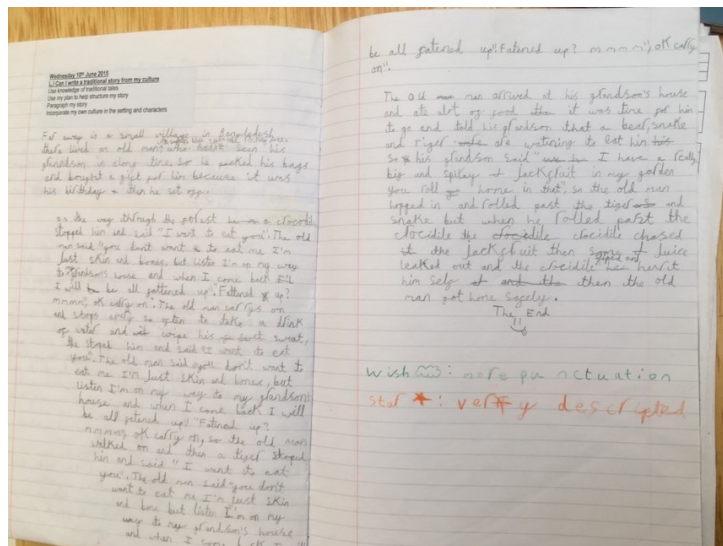 Wednesday 10th June 2015
L.I Can I write a traditional story from my culture
Use knowledge of traditional tales
Use my plan to help structure my story
Paragraph my story
Incorporate my own culture in the setting and characters
Far away in a small village in Bangladesh
there lived an old man who hasn't seen his
grandson in along time. So he packed his bags
and bought a gift for him because it was
his birthday then he set off.
on the way through the forest a crocodile
stopped him and said "I want to eat you". The old
man said "you don't want to eat me I'm
Just skin and bones, but listen I'm on my way
to grandsons house and when I come back I'll
I will be all fattened up". Fattened up?
mmmm", ok carry on". The old man carrys on
and stops every so often to take a drink
of water and wipe his sweat,
the stoped him and said "I want to eat
you". The old man said "you don't want to
eat me I'm Just skin and bones, but
listen I'm on my way to my grandsons
house and when I come back I will
be all fatened up" "Fatened up?
mmmm, ok carry on, so the old man
walked on and then a tiger stoped
him and said "I want to eat
you". The old man said "you don't
want to eat me I'm Just skin
and bone but listen I'm on my
way to my grandson's house
and when I come back I
be all fatened up". Fatened up? mmmm", ok carry
on".
The old man arrived at his grandson's house
and ate alot of food then it was time for him
to go and told his grandson that a bear, snake
and tiger are waiting to eat him
So his grandson said" I have a really
big and spikey Jackfruit in my garden
you roll home in that", so the old man
hopped in and rolled past the tiger and
snake but when he rolled past the
clocidile the clocidile clocidile chased
the Jackfruit then some Juice
leaked out and the clocidile hurt
him self then the old
man got home safely.
The End
wish: more punctuation
star: very descripted